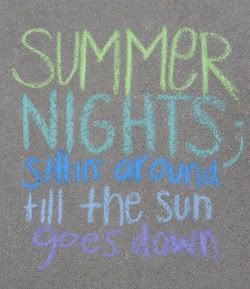 SUMMER
NIGHTS;
Sittin' around
till the sun
goes down